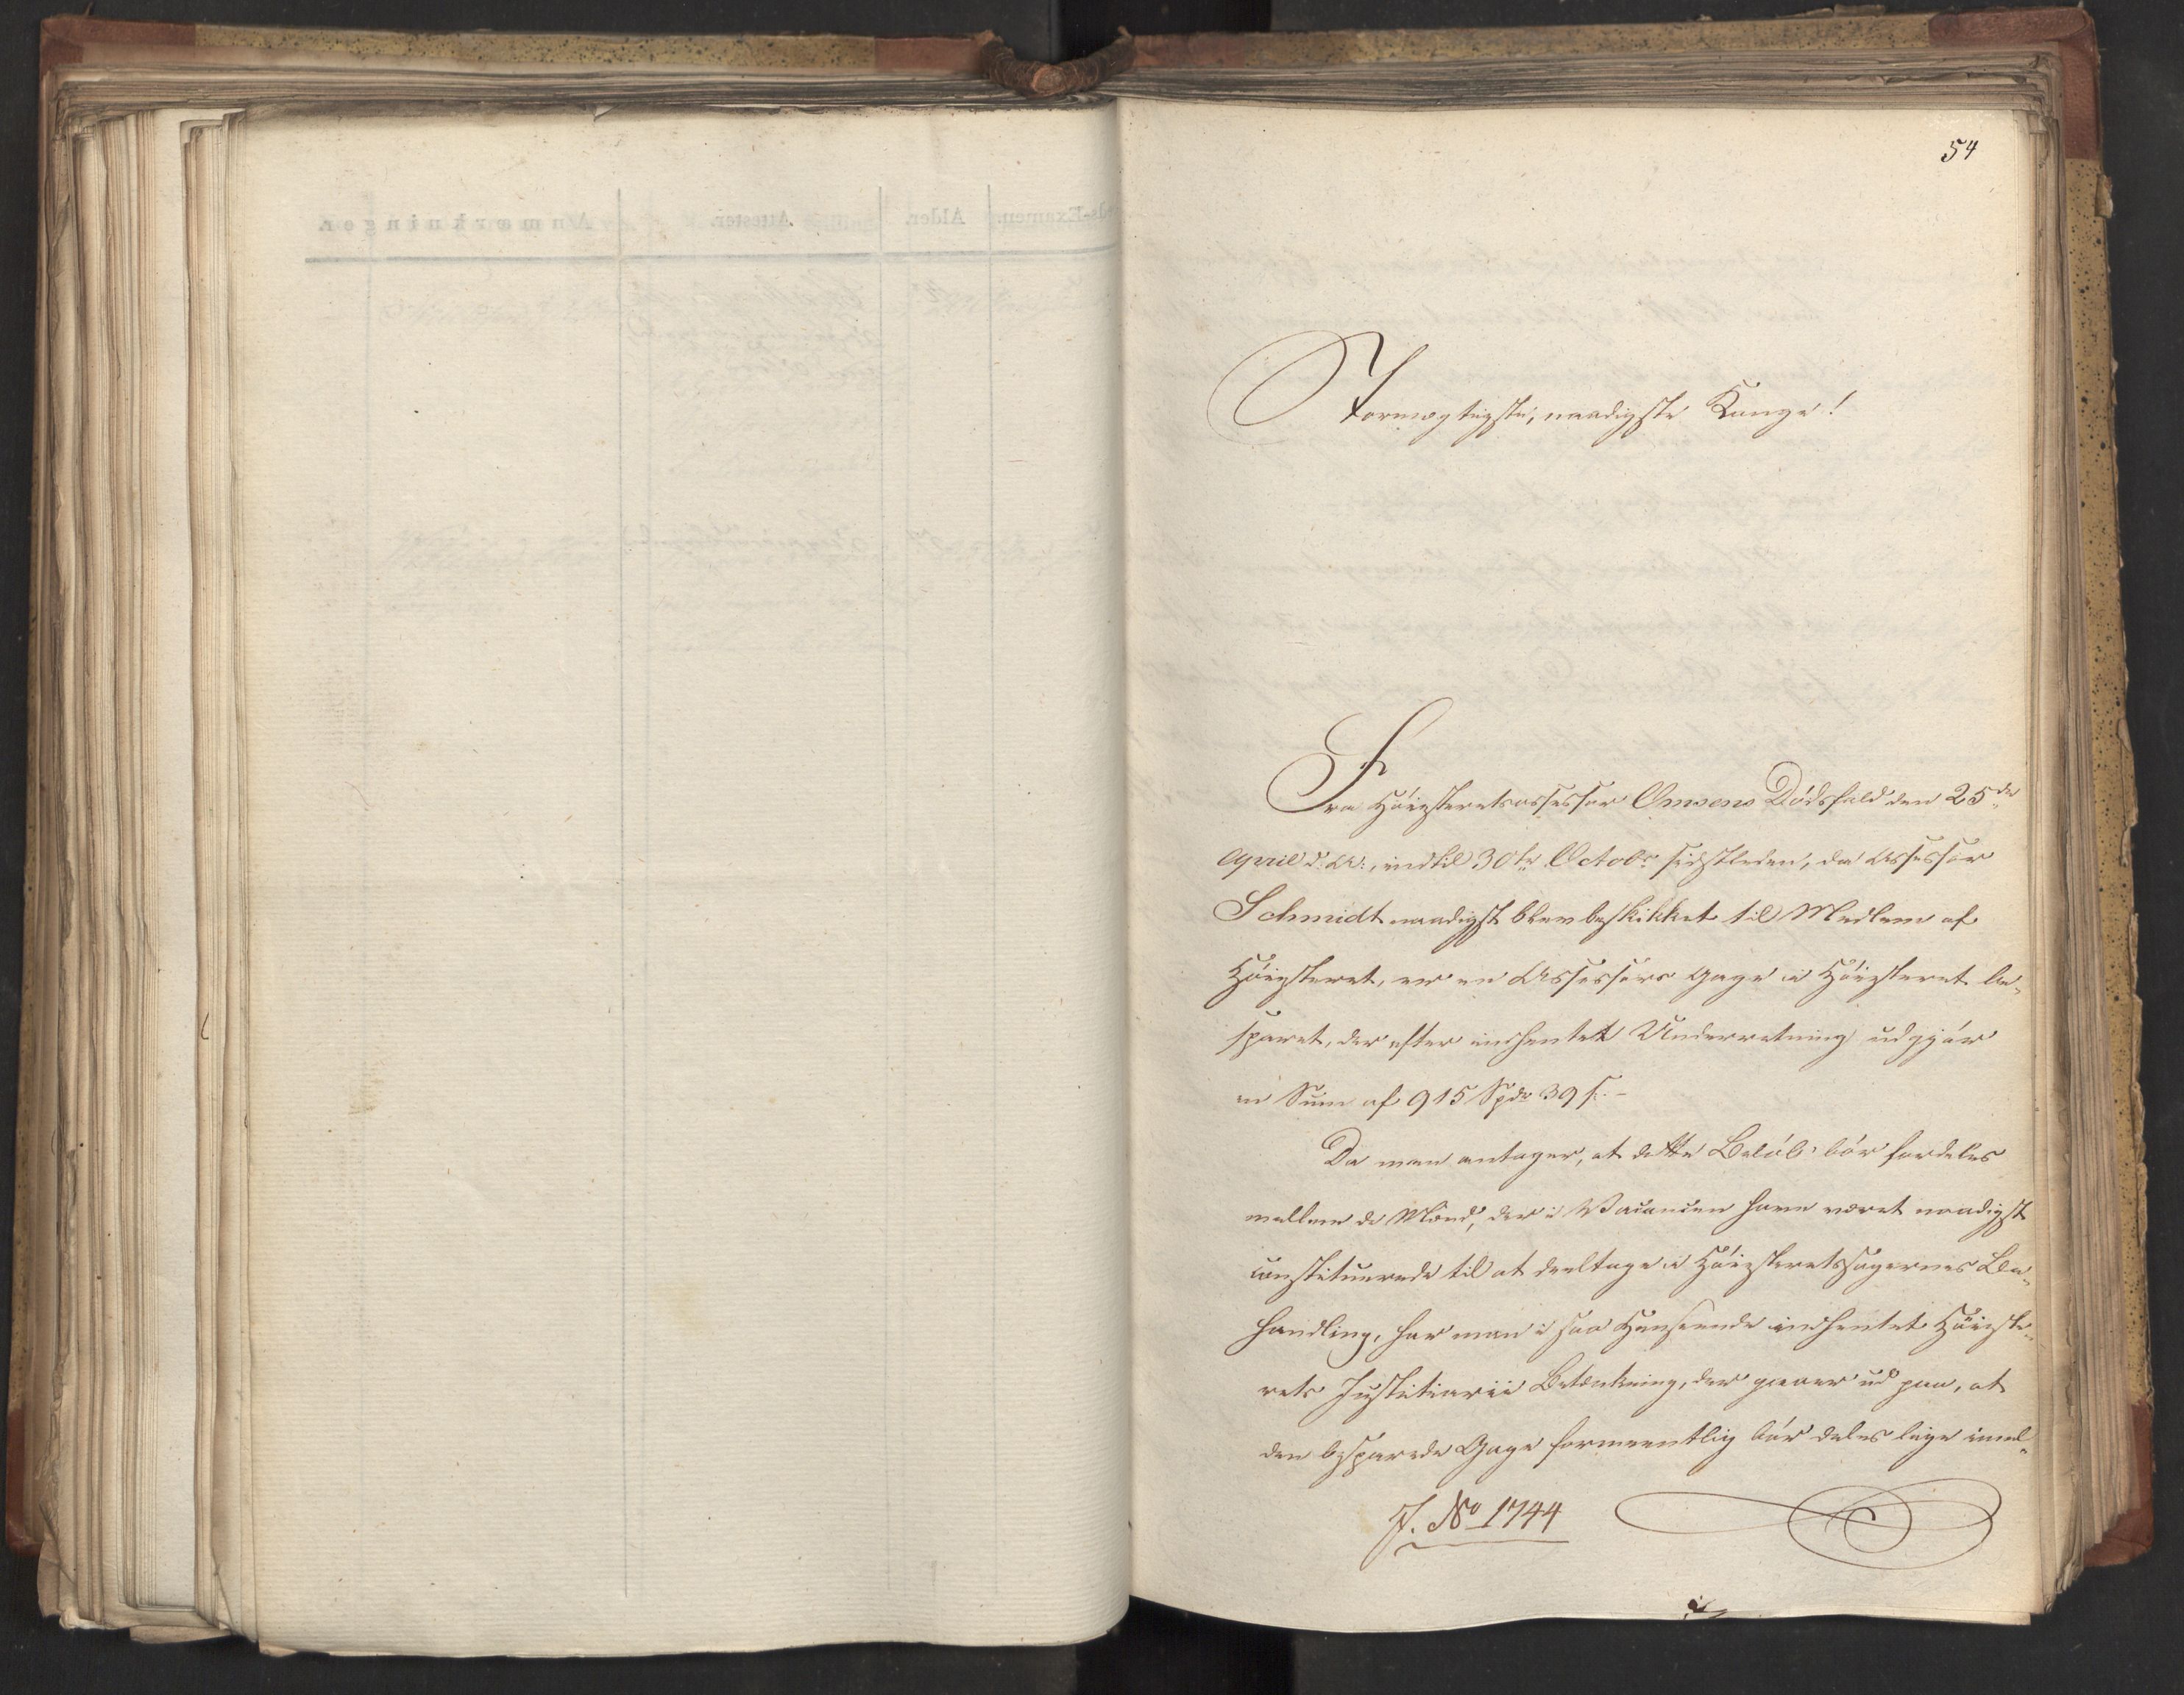 54
Stormægtigste, naadigste Konge!
Fra Höiesteretsassessor Omsens Dödsfald den 25de
April d. A., indtil 30te Octobr sidstleden, da Assessor
Schmidt naadigst blev beskikket til Medlem af
Höiesteret, er en Assessors Gage i Höiesteret be-
sparet, der efter indhentet Underretning udgjör
en Sum af 915 Spdr 39 s.-
Da man antager, at dette Belöb bör fordeles
mellem de Mænd, der i Vacancen have været naadigst
constituerede til at deeltage i Höiesteretssagernes Be-
handling, har man i saa Henseende indhentet Höieste-
rets Justitiarii Betænkning, der gaaer ud paa, at
den besparede Gage formeentlig bör deles lige imel-
J. No 1744
Anmærkninger.
Attester.
Alder.
ds-Examen.